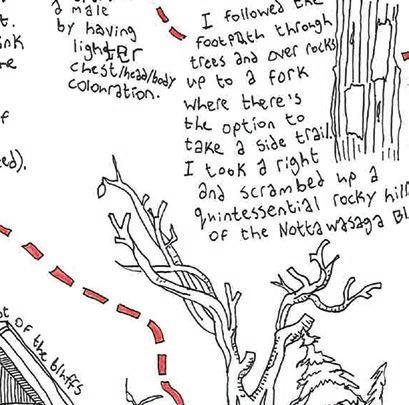 t.
ink
re
f
ed).
a male
by having
lighter
chest/head/body
colouration.
I followed the
footpath through
trees and over rocks
up to a fork
where there's
the option to
take a side trail.
I took a right
and scrambed up a
quintessential rocky hill
of the Nottawasaga Bl
st of the bluffs